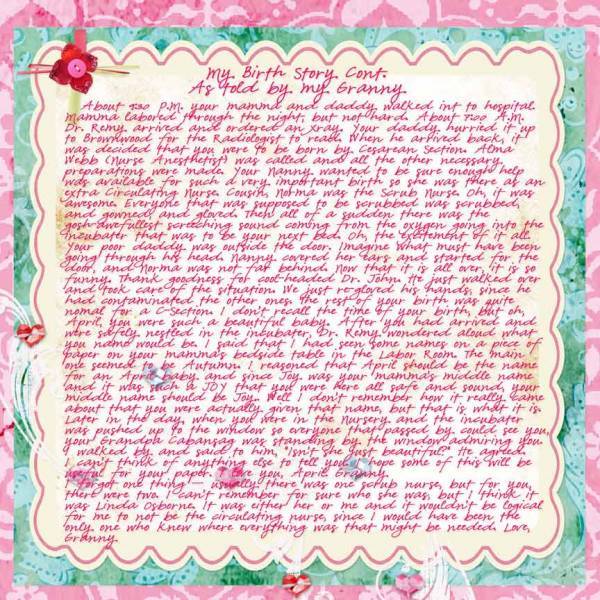 My Birth Story Cont.
As told by my Granny
About 9:00 P.M. your mamma and daddy walked int to hospital.
mamma labored through the night, but not hard. About 7:00 A.M.
Dr. Remy arrived and ordered an xray. Your daddy hurried it up
to Brownwood for the Radiologist to read. When he arrived back, it
was decided that you were to be born by Cesarean Section. Alma
Webb (Nurse Anesthetist) was called and all the other necessary
preparations were made. Your Nanny wanted to be sure enough help
was available for such a very, important birth so she was there as an
extra Circulating Nurse. Cousin, Norma was the Scrub Nurse. Oh, it was
awesome. Everyone that was supposed to be scrubbed was scrubbed,
and gowned, and gloved. Then all of a sudden there was the
gosh-awefullest screeching sound coming from the oxygen going into the
incubator that was to be your next bed. Oh, the excitement of it all.
Your poor daddy was outside the door. Imagine what must have been
going through his head. Nanny covered her ears and started for the
door, and Norma was not far behind. Now that it is all over, it is so
funny. Thank goodness for cool-headed Dr. John. He just walked over
and took care of the situation. We just re-gloved his hands, since he
had contaminated the other ones. The rest of your birth was quite
nomal for a C-Section. I don't recall the time of your birth, but oh,
April, you were such a beautiful baby. After you had arrived and
were safely nestled in the incubater, Dr. Remy wondered aloud what
you name would be. I said that I had seen some names on a piece of
paper on your mamma's bedside table in the Labor Room. The main
one seemed to Autumn. I reasoned that April should be the name
for an April baby, and since Joy was your mamma's middle name
and it was such a JOY that you were here all safe and sound, your
middle name should be Joy. Well I don't remember how it really came
about that you were actually given that name, but that is what it is.
Later in the day, when you were in the Nursery and the incubater
was pushed up to the window so everyone that passed by could see you,
your Grandpa Cabansag was standing by the window admiring you.
I walked by and said to him, "isn't she just beautiful?" He agreed.
I can't think of anything else to tell you. I hope some of this will be
useful for your paper. I love you, April Granny.
forgot one thing usually there was one scrub nurse, but for you,
there were two. I can't remember for sure who she was, but I think it
was Linda Osborne. It was either her or me and it wouldn't be logical
for me to not be the circulating nurse, since I would have been the
only one who knew where everything was that might be needed. Love,
Granny.